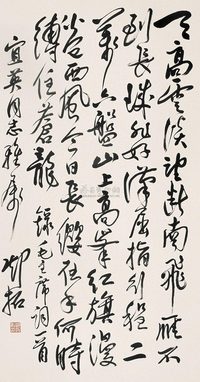 天高雲淡望断南飛雁不
到長城非好漢屈指行程二
萬六盤山上高峯紅旗漫
卷西風今日長纓在手何時
縛住蒼龍 錄毛主席詞一首
宜英同志雅屬 邓拓